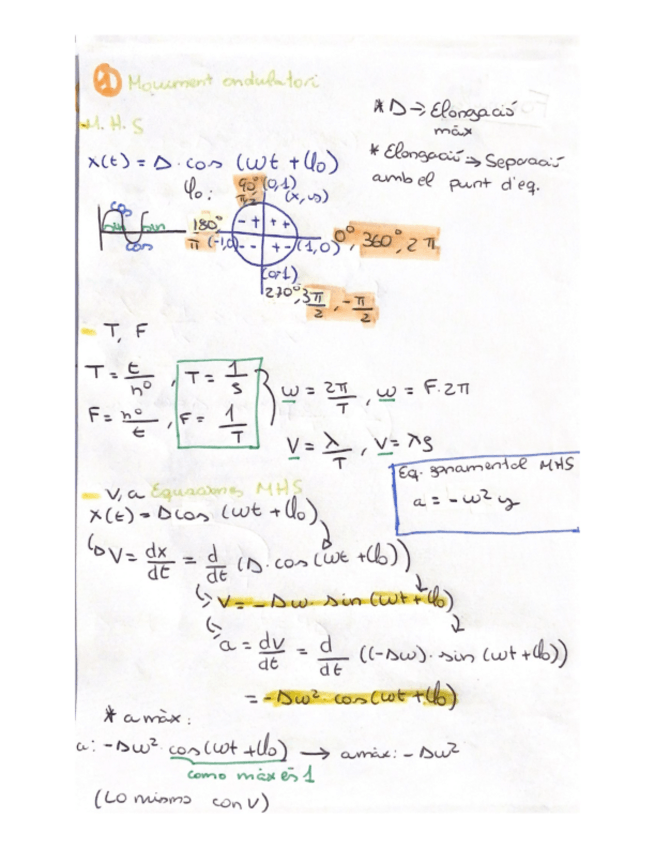 1 Moviment ondulatori
* Δ → Elongació màx
- M.H.S
* Elongació → Separació amb el punt d'eq.
x(t) = Δ · cos (ωt + φ₀)
φ₀:
90° (0,1)
π/2
(x, y)
cos
sin sin
cos
180° (-1,0)
π
- + + +
- - + -
(1,0) 0°, 360°, 2π
(0,-1)
270°, 3π/2, -π/2
- T, F
T = t/nº , T = 1/s
F = nº/t , F = 1/T
ω = 2π/T , ω = F·2π
V = λ/T , V = λs
Eq. fonamental MHS
a = -ω² y
- V, a Equacions MHS
x(t) = Δ cos (ωt + φ₀)
V = dx/dt = d/dt (Δ · cos (ωt + φ₀))
V = -Δω · sin (ωt + φ₀)
a = dv/dt = d/dt ((-Δω) · sin (ωt + φ₀))
= -Δω² · cos (ωt + φ₀)
* a màx:
a: -Δω² cos (ωt + φ₀) → a màx: -Δω²
como màx és 1
(Lo mismo con V)